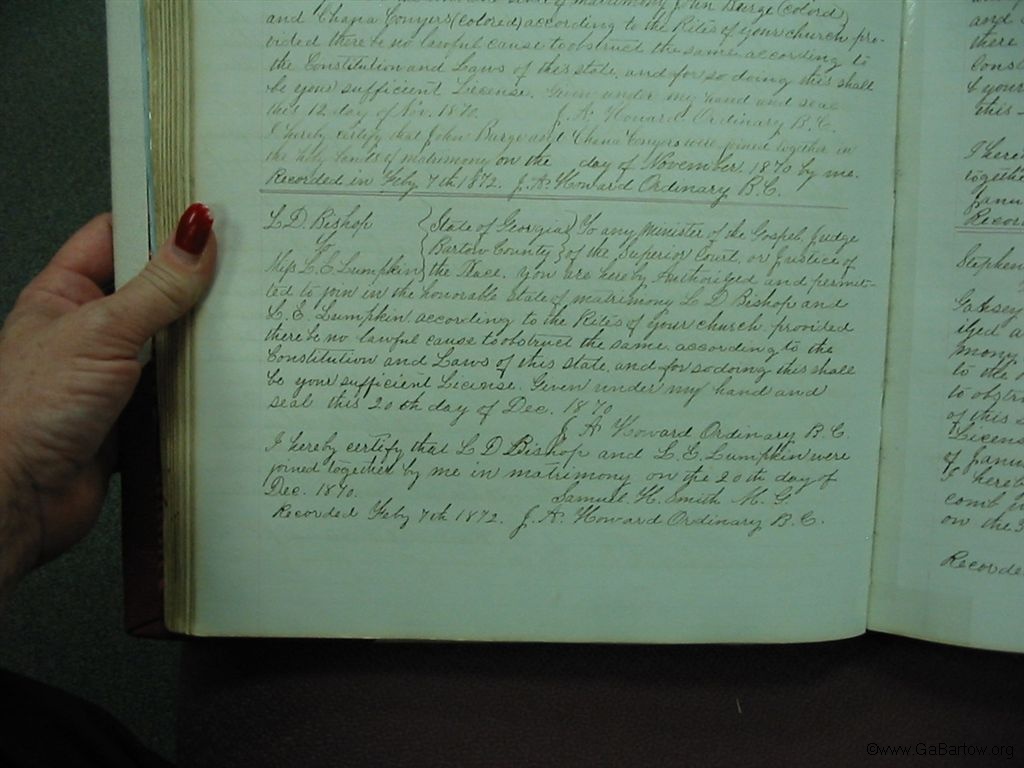 of matrimony John Burge (Colord)
and Chana Conyers (colored) according to the Rites of your church pro-
vided there be no lawful cause to obstruct the same according to
the Constitution and Laws of this state, and for so doing this shall
be your sufficient License. Given under my hand and seal
this 12 day of Nov. 1870. J. A. Howard Ordinary B. C.
I hereby certify that John Burge and Chana Conyers were joined together in
the holy bands of matrimony on the day of November 1870 by me.
Recorded in Feby 7th 1872. J. A. Howard Ordinary B. C.
L. D. Bishop
to
Miss L. E. Lumpkin
State of Georgia
Bartow County
To any Minister of the Gospel, Judge
of the Superior Court, or Justice of
the Peace. You are hereby Authorized and permit-
ted to join in the honorable state of matrimony L D Bishop and
L. E. Lumpkin according to the Rites of your church provided
there be no lawful cause to obstruct the same according to the
Constitution and Laws of this state, and for so doing this shall
be your sufficient License. Given under my hand and
seal this 20th day of Dec. 1870
J. A Howard Ordinary B. C.
I hereby certify that L D Bishop and L. E. Lumpkin were
joined together by me in matrimony on the 20th day of
Dec. 1870. Samuel H. Smith M. G
Recorded Feby 7th 1872. J. A. Howard Ordinary B. C.
and
there
Const
& your
this
I here
together
Janu
Recor
Stephen
to the
to obstr
of this
License
of Janu
I hereb
on the
Recorde
©www.GaBartow.org